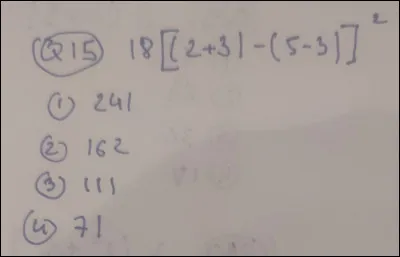 Q15 18[(2+3)-(5-3)]²
① 241
② 162
③ 111
④ 71